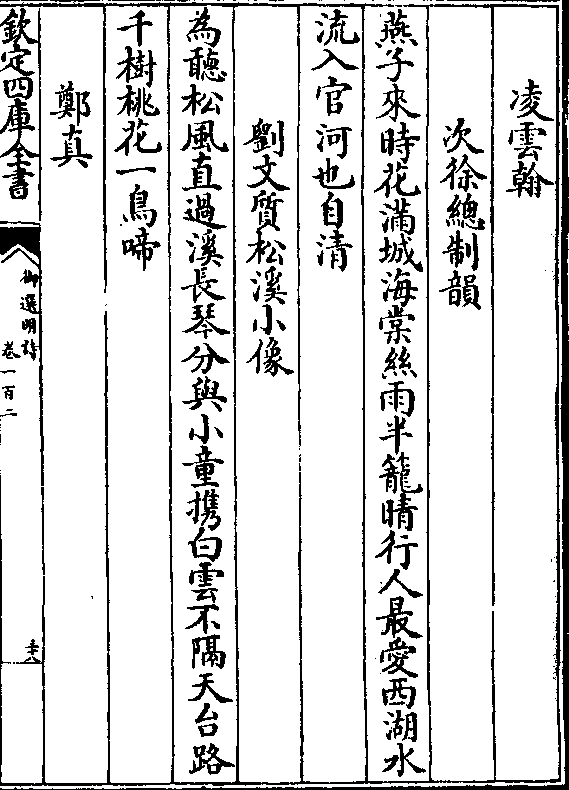 凌雲翰
次徐總制韻
燕子來時花滿城海棠絲雨半籠晴行人最愛西湖水
流入官河也自清
劉文質松溪小像
為聽松風直過溪長琴分與小童攜白雲不隔天台路
千樹桃花一鳥啼
鄭真
欽定四庫全書
御選明詩
卷一百二